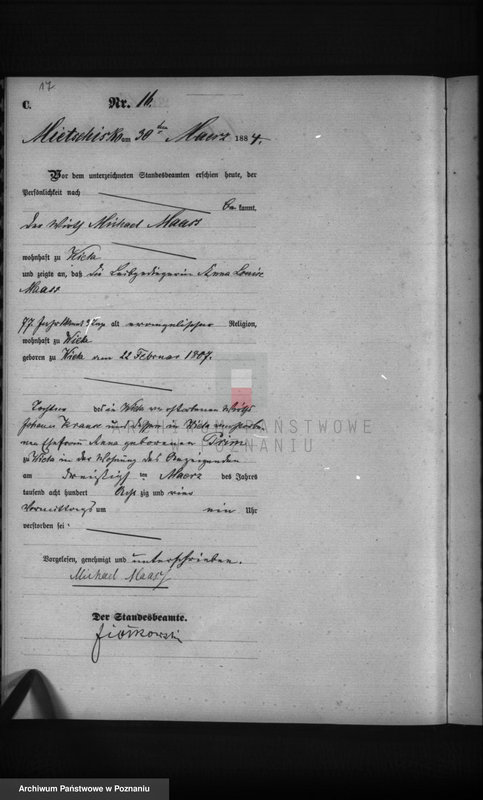 17
C.
Nr. 16.
Mietschisko am 30ten Maerz 1884.
Vor dem unterzeichneten Standesbeamten erschien heute, der
Persönlichkeit nach
be kannt,
der Wirth Michael Maass
wohnhaft zu Wiela
und zeigte an, daß die Leibgedingerin Anna Louise
Maass
77 Jahr 1 Monat 9 Tage alt evangelischer Religion,
wohnhaft zu Wiela
geboren zu Wiela am 22 Februar 1807.
Tochter des in Wiela verstorbenen Wirths
Johann Krause und dessen in Wiela verstorbe-
nen Ehefrau Anna geborenen Prim
ARCHIWUM PAŃSTWOWE
W POZNANIU
zu Wiela in der Wohnung des Anzeigenden
am dreißigsten Maerz des Jahres
tausend acht hundert Acht zig und vier
Vormittags um ein Uhr
verstorben sei.
Vorgelesen, genehmigt und unterschrieben.
Michael Maass
Der Standesbeamte.
Fiolkowski
Archiwum Państwowe w Poznaniu